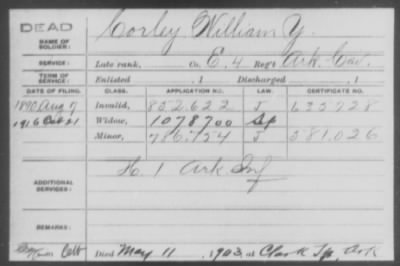 DEAD
NAME OF SOLDIER:
Corley William Y.
SERVICE:
Late rank, Co. E. 4 Reg't Ark. Cav.
TERM OF SERVICE:
Enlisted , 1 Discharged , 1
DATE OF FILING. CLASS. APPLICATION NO. LAW. CERTIFICATE NO.
1890 Aug 7 Invalid, 852.622 J 635728
1916 Oct 21 Widow, 1078700 Sp
Minor, 786.754 J 581.026
ADDITIONAL SERVICES:
H. 1 Ark Inf
REMARKS:
Died May 11, 1903, at Clark Tp, Ark